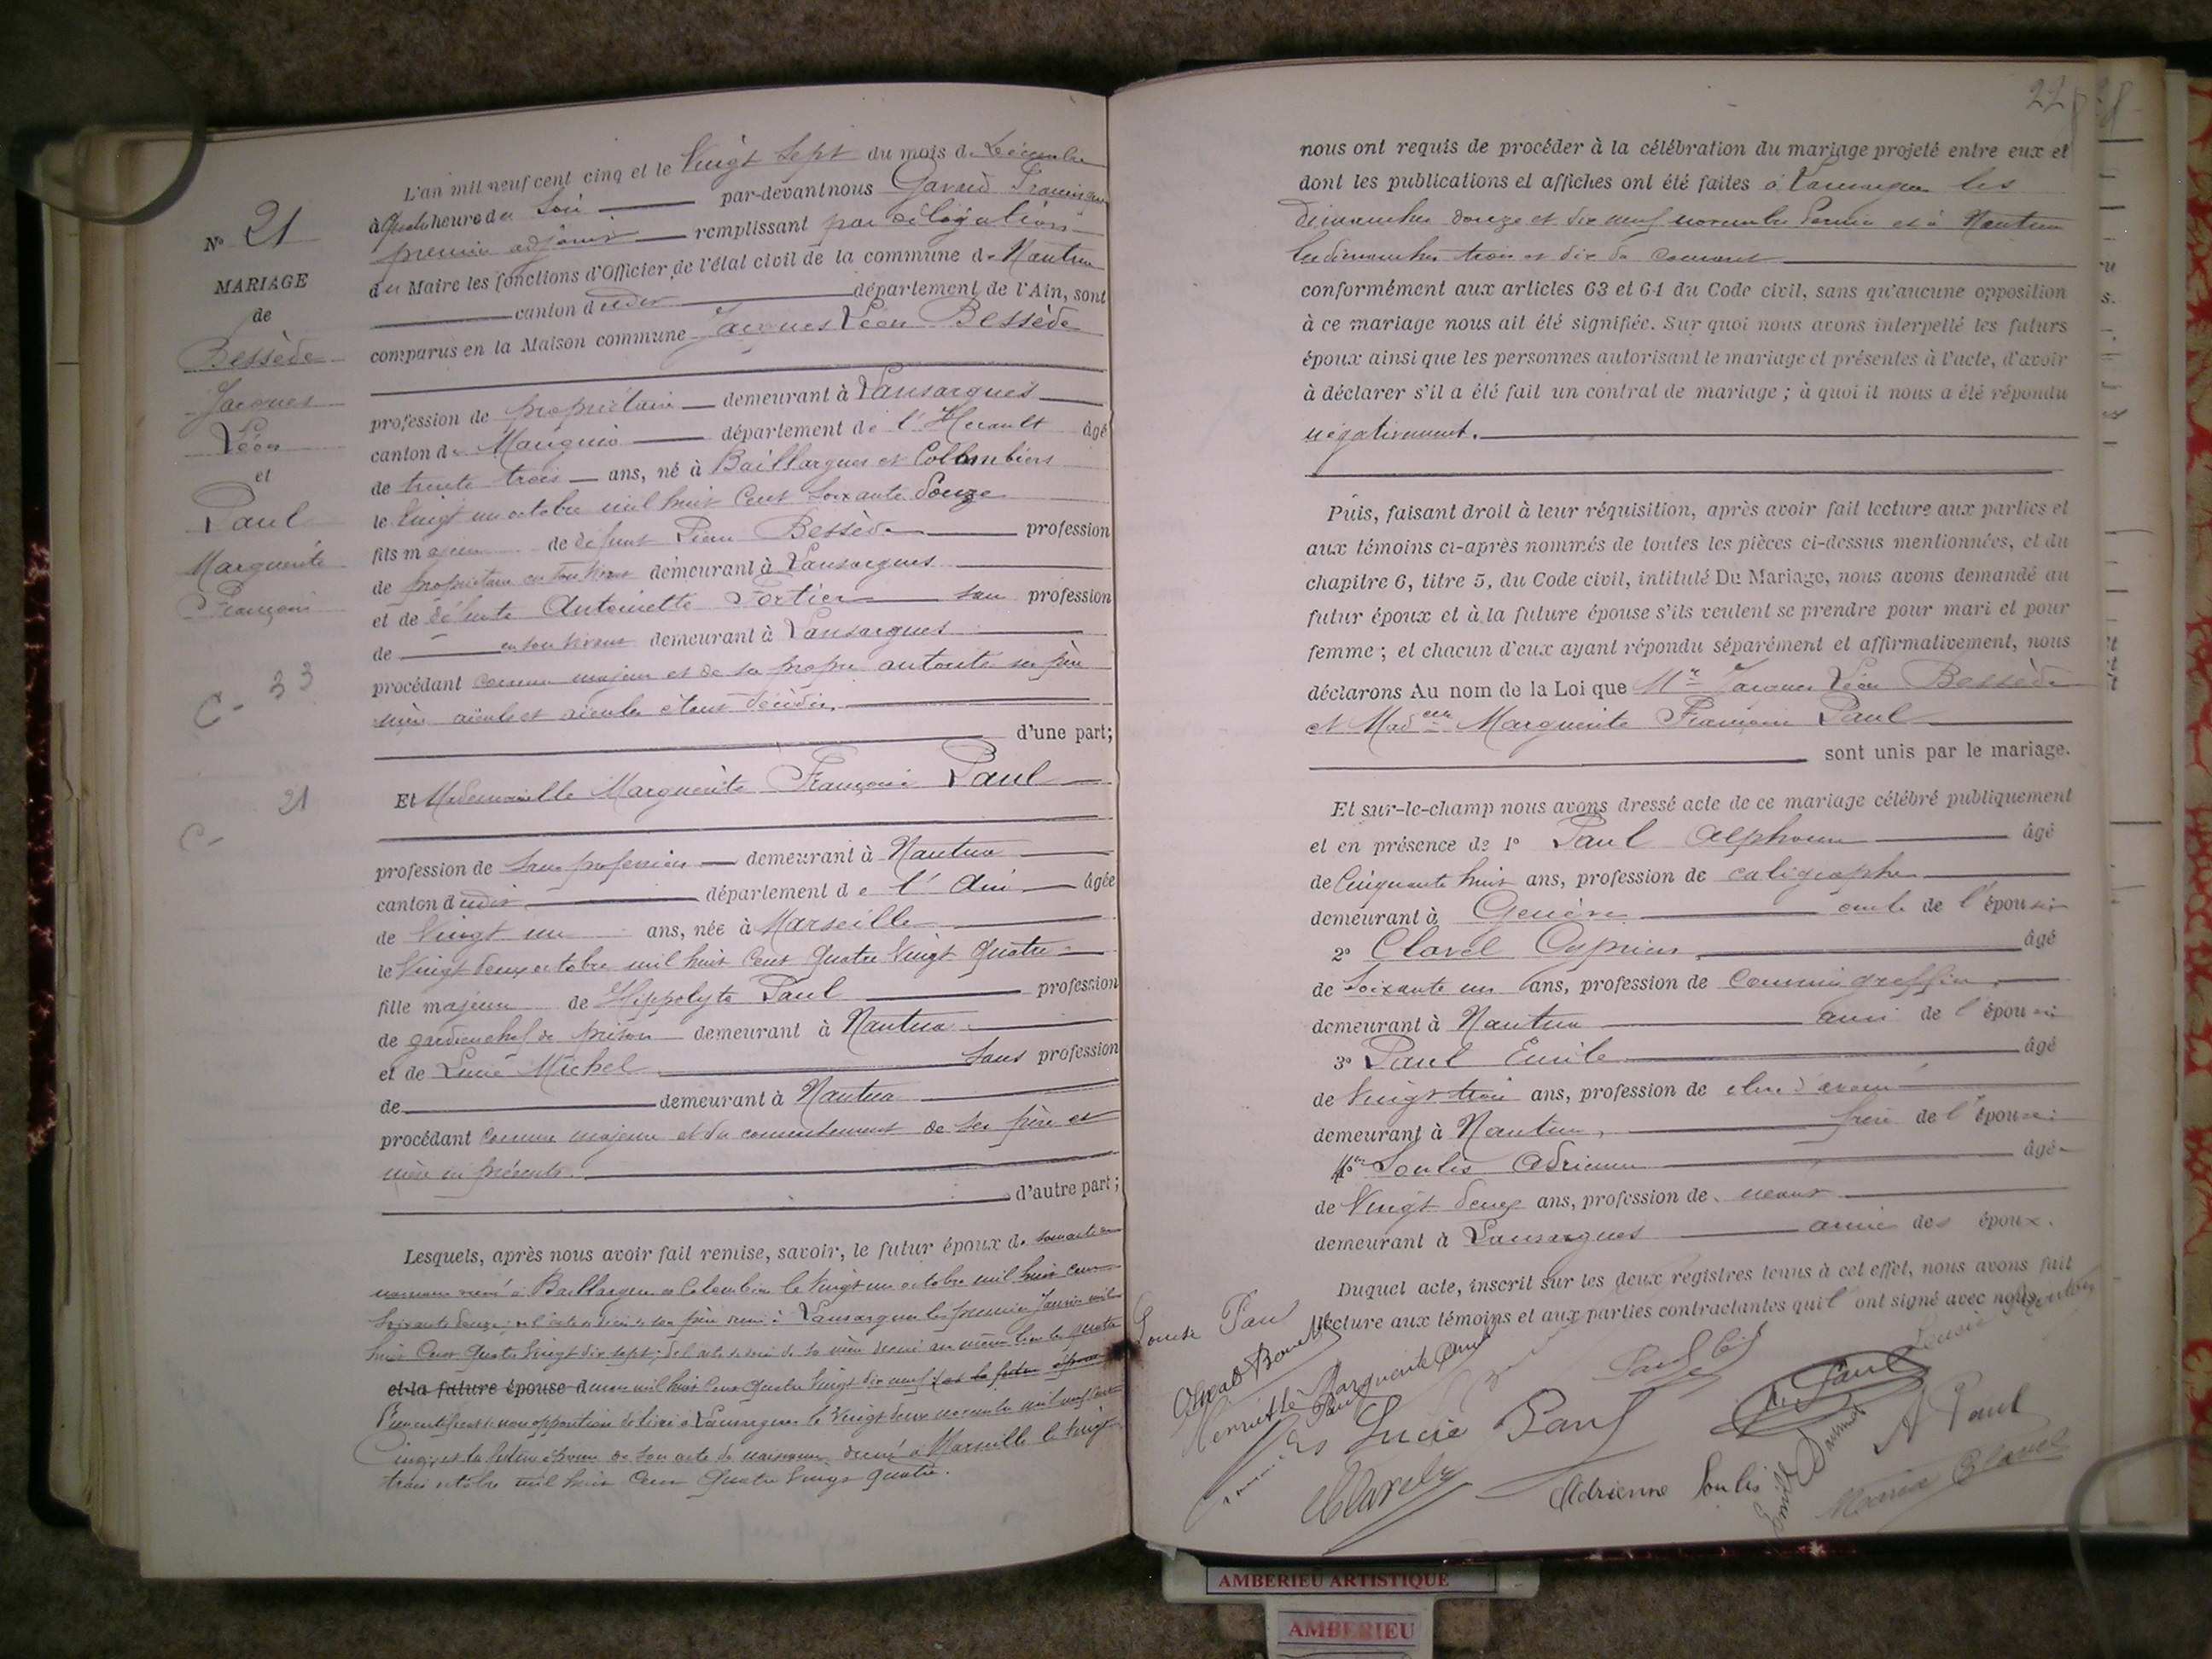 N° 21
MARIAGE
de
Bessède
Jacques
Léon
et
Paul
Marguerite
Françoise
C- 33
C- 21
L'an mil neuf cent cinq et le Vingt Sept du mois de Décembre
à quatre heure du Soir par-devant nous Gavard François
premier adjoint remplissant par délégation
du Maire les fonctions d'Officier de l'état civil de la commune de Nantua
canton d udit département de l'Ain, sont
comparus en la Maison commune Jacques Léon Bessède
profession de propriétaire demeurant à Lansargues
canton de Mauguio département de l'Herault âgé
de trente trois ans, né à Baillargues et Collombiers
le vingt un octobre mil huit Cent soixante Douze
fils majeur de défunt Pierre Bessède profession
de propriétaire en son vivant demeurant à Lansargues
et de défunte Antoinette Fortier sans profession
de en son vivant demeurant à Lansargues
procédant comme majeur et de sa propre autorité ses père
mère aïeuls et aïeules étant décédés.
d'une part;
Et Mademoiselle Marguerite Françoise Paul
profession de sans profession demeurant à Nantua
canton d udit département de l'Ain âgée
de Vingt un ans, née à Marseille
le Vingt deux octobre mil huit Cent Quatre Vingt Quatre
fille majeure de Hippolyte Paul profession
de gardien chef de prison demeurant à Nantua
et de Lucie Michel Sans profession
de demeurant à Nantua
procédant comme majeure et du consentement de ses père et
mère ici présents.
d'autre part;
Lesquels, après nous avoir fait remise, savoir, le futur époux de son acte de
naissance dressé à Baillargues et Colombiers le vingt un octobre mil huit cent
soixante douze; de l'acte de décès de son père dressé à Lansargues le premier Janvier mil
huit Cent Quatre Vingt dix sept; de l'acte de décès de sa mère dressé au même lieu le quatre
et la future épouse d mil huit Cent Quatre Vingt dix neuf; et la future épouse
d'un certificat de non opposition délivré à Lansargues le Vingt deux novembre mil neuf cent
Cinq; et la future épouse de son acte de naissance dressé à Marseille le vingt
trois octobre mil huit Cent Quatre Vingt Quatre.
228
nous ont requis de procéder à la célébration du mariage projeté entre eux et
dont les publications et affiches ont été faites à Lansargues les
dimanches douze et dix neuf novembre dernier et à Nantua
les dimanches trois et dix du courant
conformément aux articles 63 et 64 du Code civil, sans qu'aucune opposition
à ce mariage nous ait été signifiée. Sur quoi nous avons interpellé les futurs
époux ainsi que les personnes autorisant le mariage et présentes à l'acte, d'avoir
à déclarer s'il a été fait un contrat de mariage; à quoi il nous a été répondu
négativement.
Puis, faisant droit à leur réquisition, après avoir fait lecture aux parties et
aux témoins ci-après nommés de toutes les pièces ci-dessus mentionnées, et du
chapitre 6, titre 5, du Code civil, intitulé Du Mariage, nous avons demandé au
futur époux et à la future épouse s'ils veulent se prendre pour mari et pour
femme; et chacun d'eux ayant répondu séparément et affirmativement, nous
déclarons Au nom de la Loi que Mr Jacques Léon Bessède
et Madelle Marguerite Françoise Paul
sont unis par le mariage.
Et sur-le-champ nous avons dressé acte de ce mariage célébré publiquement
et en présence de 1° Paul Alphonse âgé
de Cinquante huit ans, profession de caligraphe
demeurant à Genève oncle de l'épouse
2° Clavel Cyprien âgé
de Soixante un ans, profession de commis greffier
demeurant à Nantua ami de l'épouse
3° Paul Emile âgé
de Vingt trois ans, profession de clerc d'avoué
demeurant à Nantua, frère de l'épouse
4° Soulis Adrienne âgé
de Vingt deux ans, profession de néant
demeurant à Lansargues amie des époux.
Duquel acte, inscrit sur les deux registres tenus à cet effet, nous avons fait
lecture aux témoins et aux parties contractantes qui l'ont signé avec nous.
Louise Paul
Marguerite Paul
Henriette Paul
Lucie Paul
H. Paul
A Paul
Clavel
Adrienne Soulis
Maria Clavel
AMBERIEU ARTISTIQUE
AMBERIEU